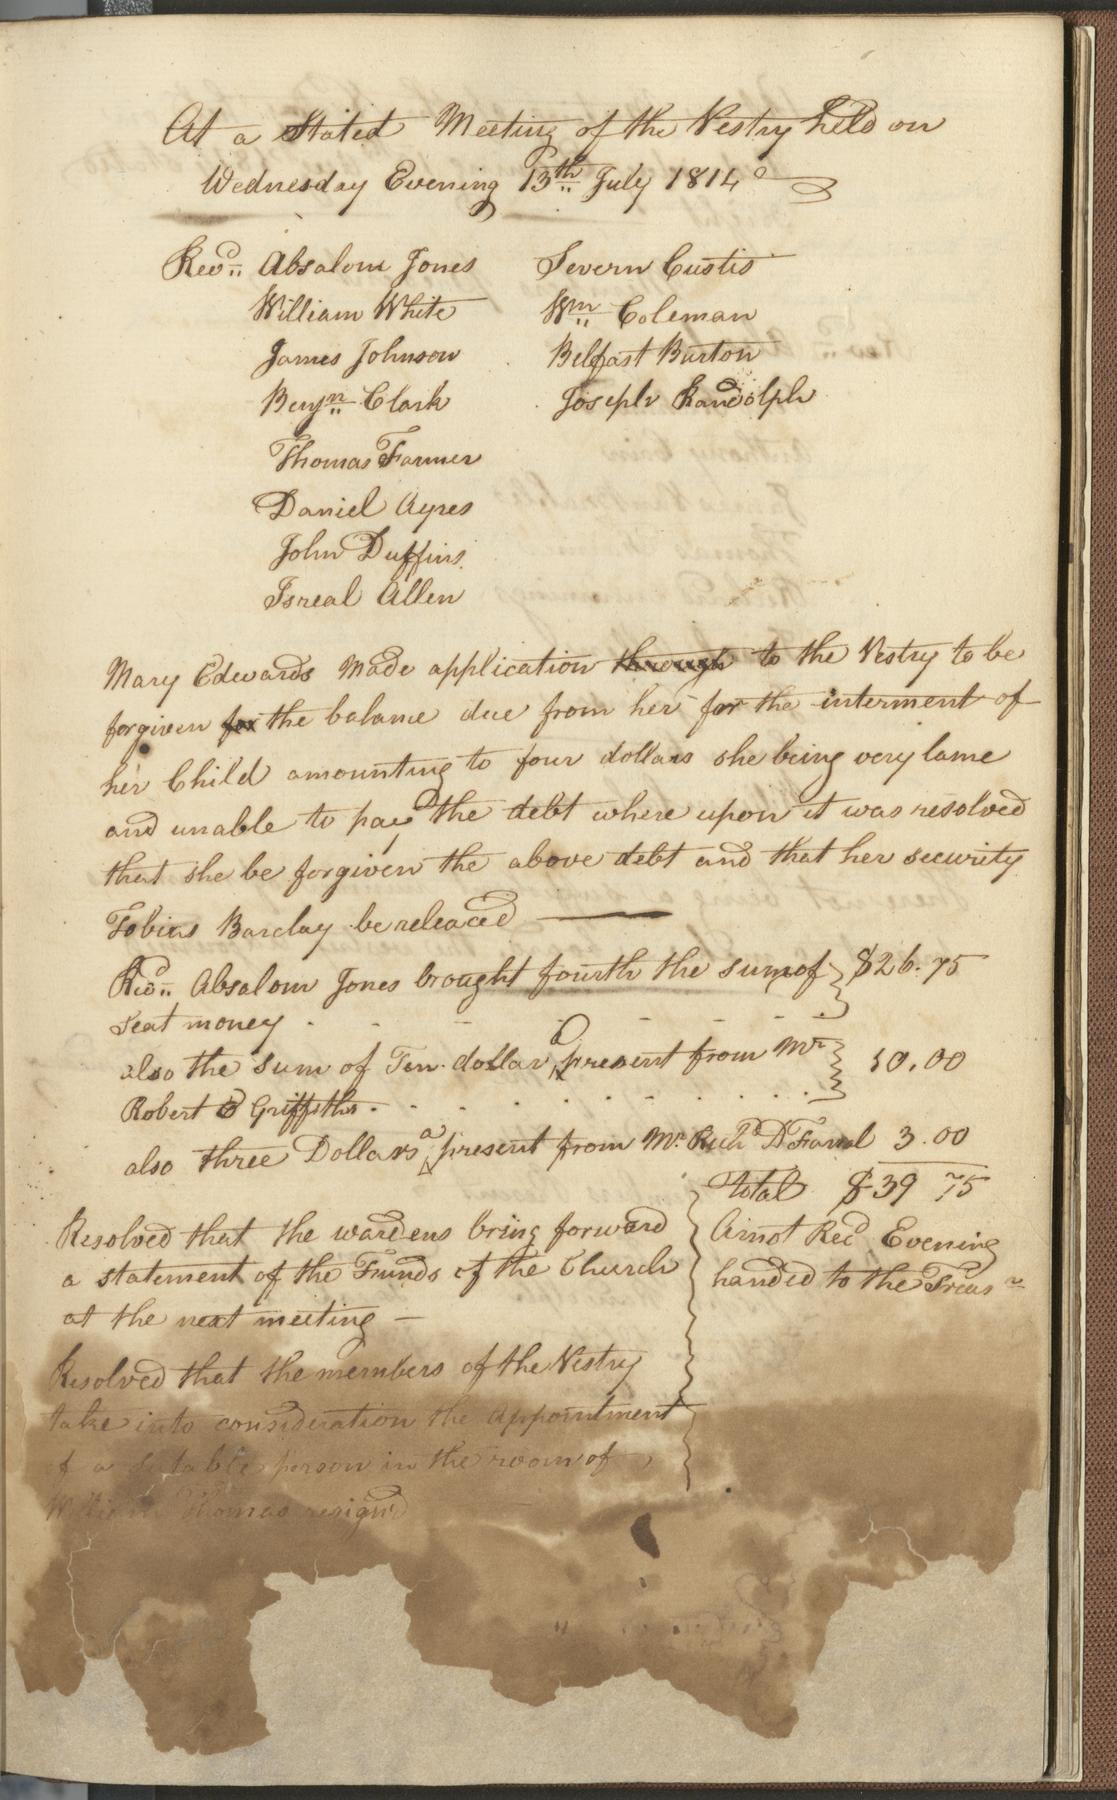 At a Stated Meeting of the Vestry held on
Wednesday Evening 13th July 1814
Revd Absalom Jones
William White
James Johnson
Benjn Clark
Thomas Farmer
Daniel Ayres
John Duffins
Isreal Allen
Severn Custis
Wm Coleman
Belfast Burton
Joseph Randolph
Mary Edwards Made application through to the Vestry to be
forgiven for the balance due from her for the interment of
her Child amounting to four dollars she being very lame
and unable to pay the debt where upon it was resolved
that she be forgiven the above debt and that her security
Tobias Barclay be releaced
Revd Absalom Jones brought fourth the sum of $26.75
Seat money
also the sum of Ten dollar a present from Mr 10.00
Robert Griffiths
also three Dollars a present from Mr Richd 3.00
Total $39 75
Resolved that the wardens bring forward
a statement of the Funds of the Church
at the next meeting —
Amot Recd Evening
handed to the Treasr
Resolved that the members of the Vestry
take into consideration the appointment
of a sutable person in the room of
William Thomas resign'd